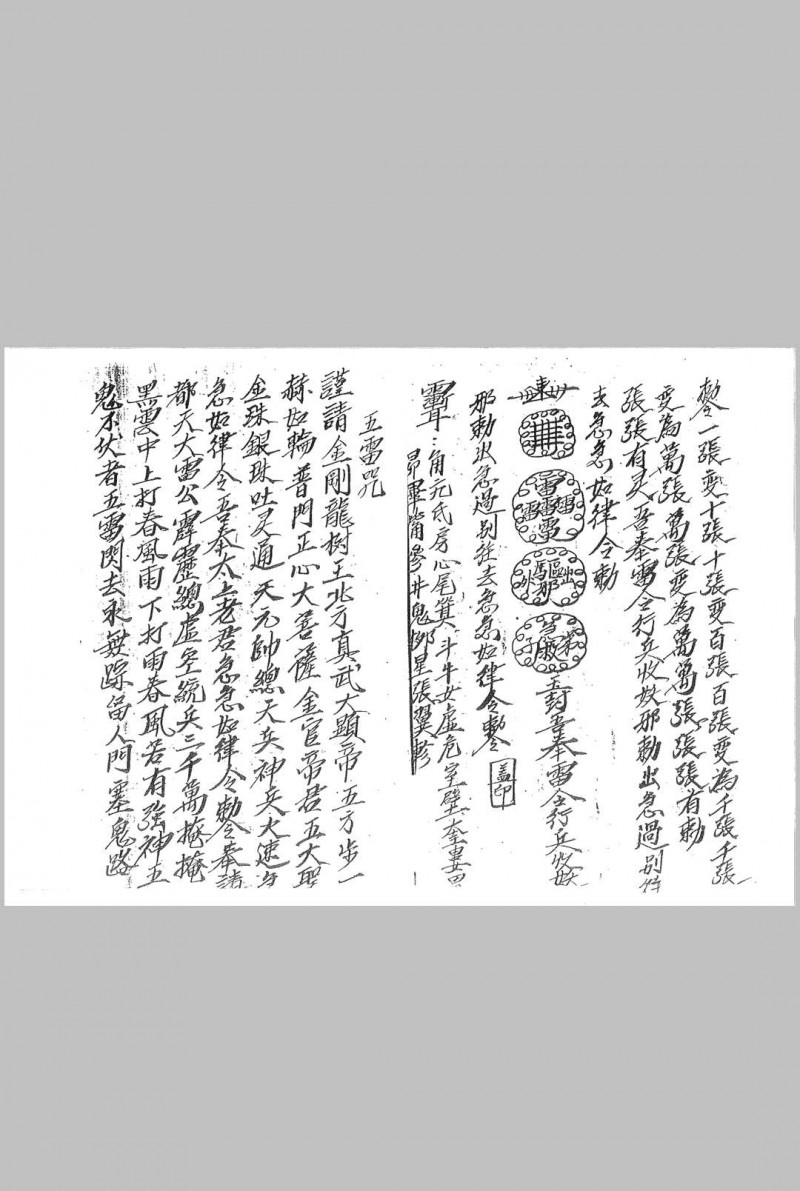 勅令一張变十張十張变百張百張变為千張千張
变為萬張萬張变為萬萬張張張有勅
張張有灵吾奉雷令行兵收妖邪勅出急過別
去急急如律令勅
封吾奉雷令行兵收妖
邪勅出急過別往去急急如律令勅令
蓋印
角亢氐房心尾箕斗牛女虛危室壁奎婁
昴畢觜參井鬼柳星張翼軫
五雷咒
謹請金剛龍樹王北方真武大顕帝五方步一
赫如輪普門正心大菩薩金官帝君五大聖
金珠銀珠吐灵通天元帥總天兵神兵火速急
急如律令吾奉太上老君急急如律令勅令奉請
都天大雷公霹靂總虛空統兵三千萬掩掩
黑雲中上打春風雨下打雨春風若有強神五
鬼不伏者五雷閃去永無踪留人門塞鬼路